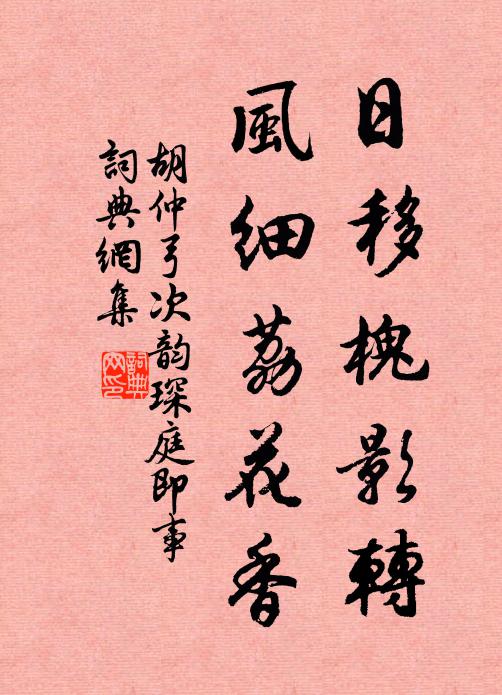 日移槐影轉
風細荔花香
胡仲弓次韵琛庭即事
詞典網集
詞典網印